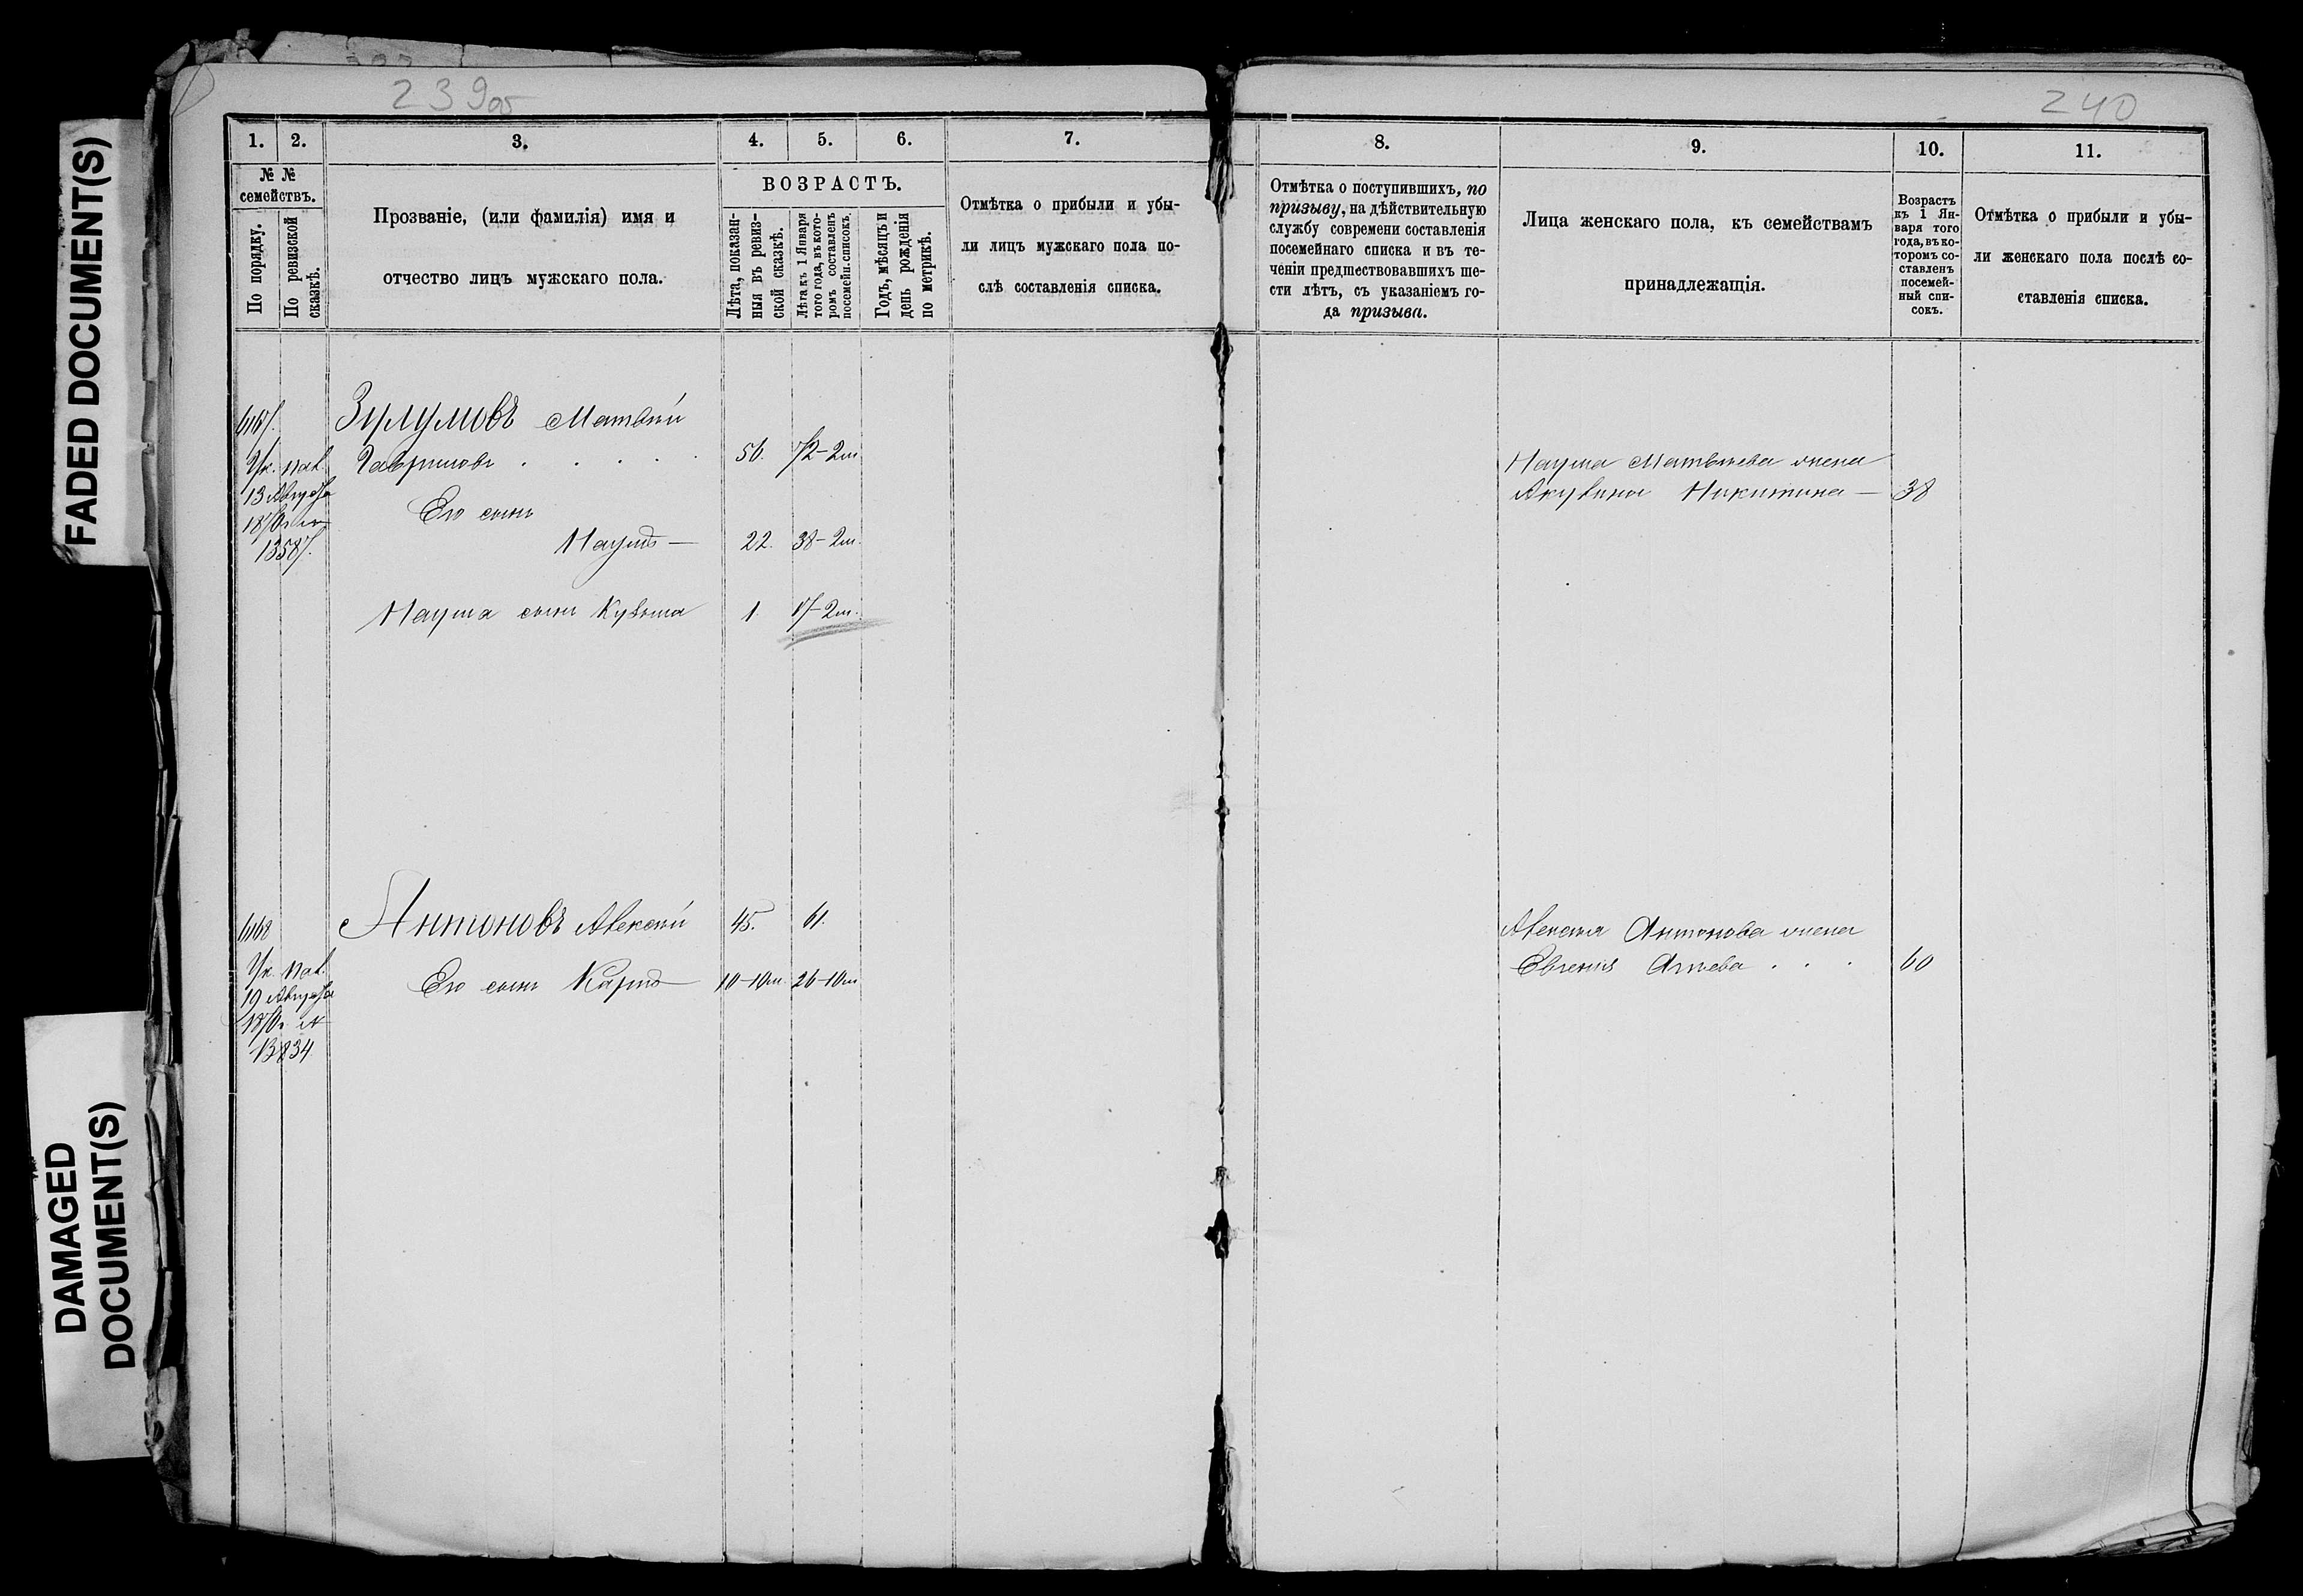 FADED DOCUMENT(S)
DAMAGED
DOCUMENT(S)
239об
240
1.
2.
3.
4.
5.
6.
7.
№ №
семействъ.
По порядку.
По ревизской
сказкѣ.
Прозваніе, (или фамилія) имя и
отчество лицъ мужскаго пола.
ВОЗРАСТЪ.
Лѣта, показан-
ныя въ ревиз-
ской сказкѣ.
Лѣта къ 1 Января
того года, въ кото-
ромъ составленъ
посемейн. списокъ.
Годъ, мѣсяцъ и
день рожденія
по метрикѣ.
Отмѣтка о прибыли и убы-
ли лицъ мужскаго пола по-
слѣ составленія списка.
Матвѣй
Ук. пал.
Гавриловъ . . . . .
56.
72-2м
13 Августа
1870 г. №
Его сынъ
13587.
Наумъ —
22.
38-2м.
Наума сынъ Кузьма
1.
17-2м.
Антоновъ Алексѣй
45.
61.
Ук. пал.
Его сынъ Карпъ
10-10м.
26-10м
19 Августа
1870 г. №
13834
8.
9.
10.
11.
Отмѣтка о поступившихъ, по
призыву, на дѣйствительную
службу современи составленія
посемейнаго списка и въ те-
ченіи предшествовавшихъ ше-
сти лѣтъ, съ указаніемъ го-
да призыва.
Лица женскаго пола, къ семействамъ
принадлежащія.
Возрастъ
къ 1 Ян-
варя того
года, въ ко-
торомъ со-
ставленъ
посемей-
ный спи-
сокъ.
Отмѣтка о прибыли и убы-
ли женскаго пола послѣ со-
ставленія списка.
Наума Матвѣева жена
Акулина Никитина —
38
Алексѣя Антонова жена
Евгенія . . .
60